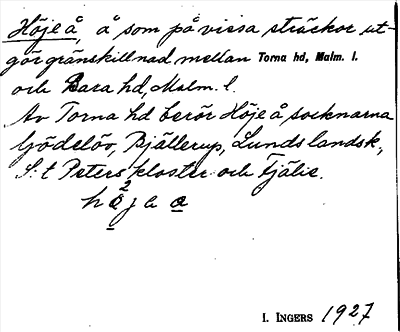 Höje å, å som på vissa sträckor ut-
gör gränskillnad mellan Torna hd, Malm. l.
och Bara hd, Malm. l.
Av Torna hd berör Höje å socknarna
Gödelöv, Bjällerup, Lunds landsk.,
S:t Peters kloster och Fjälie.
I. INGERS 1927